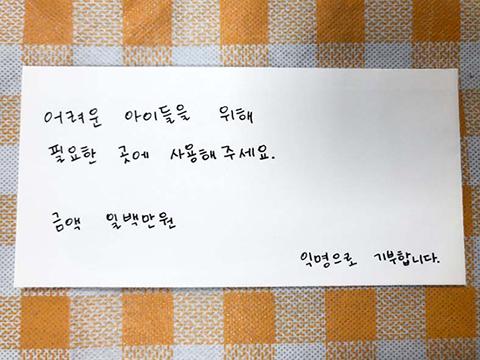 어려운 아이들을 위해
필요한 곳에 사용해주세요.
금액 일백만원
익명으로 기부합니다.